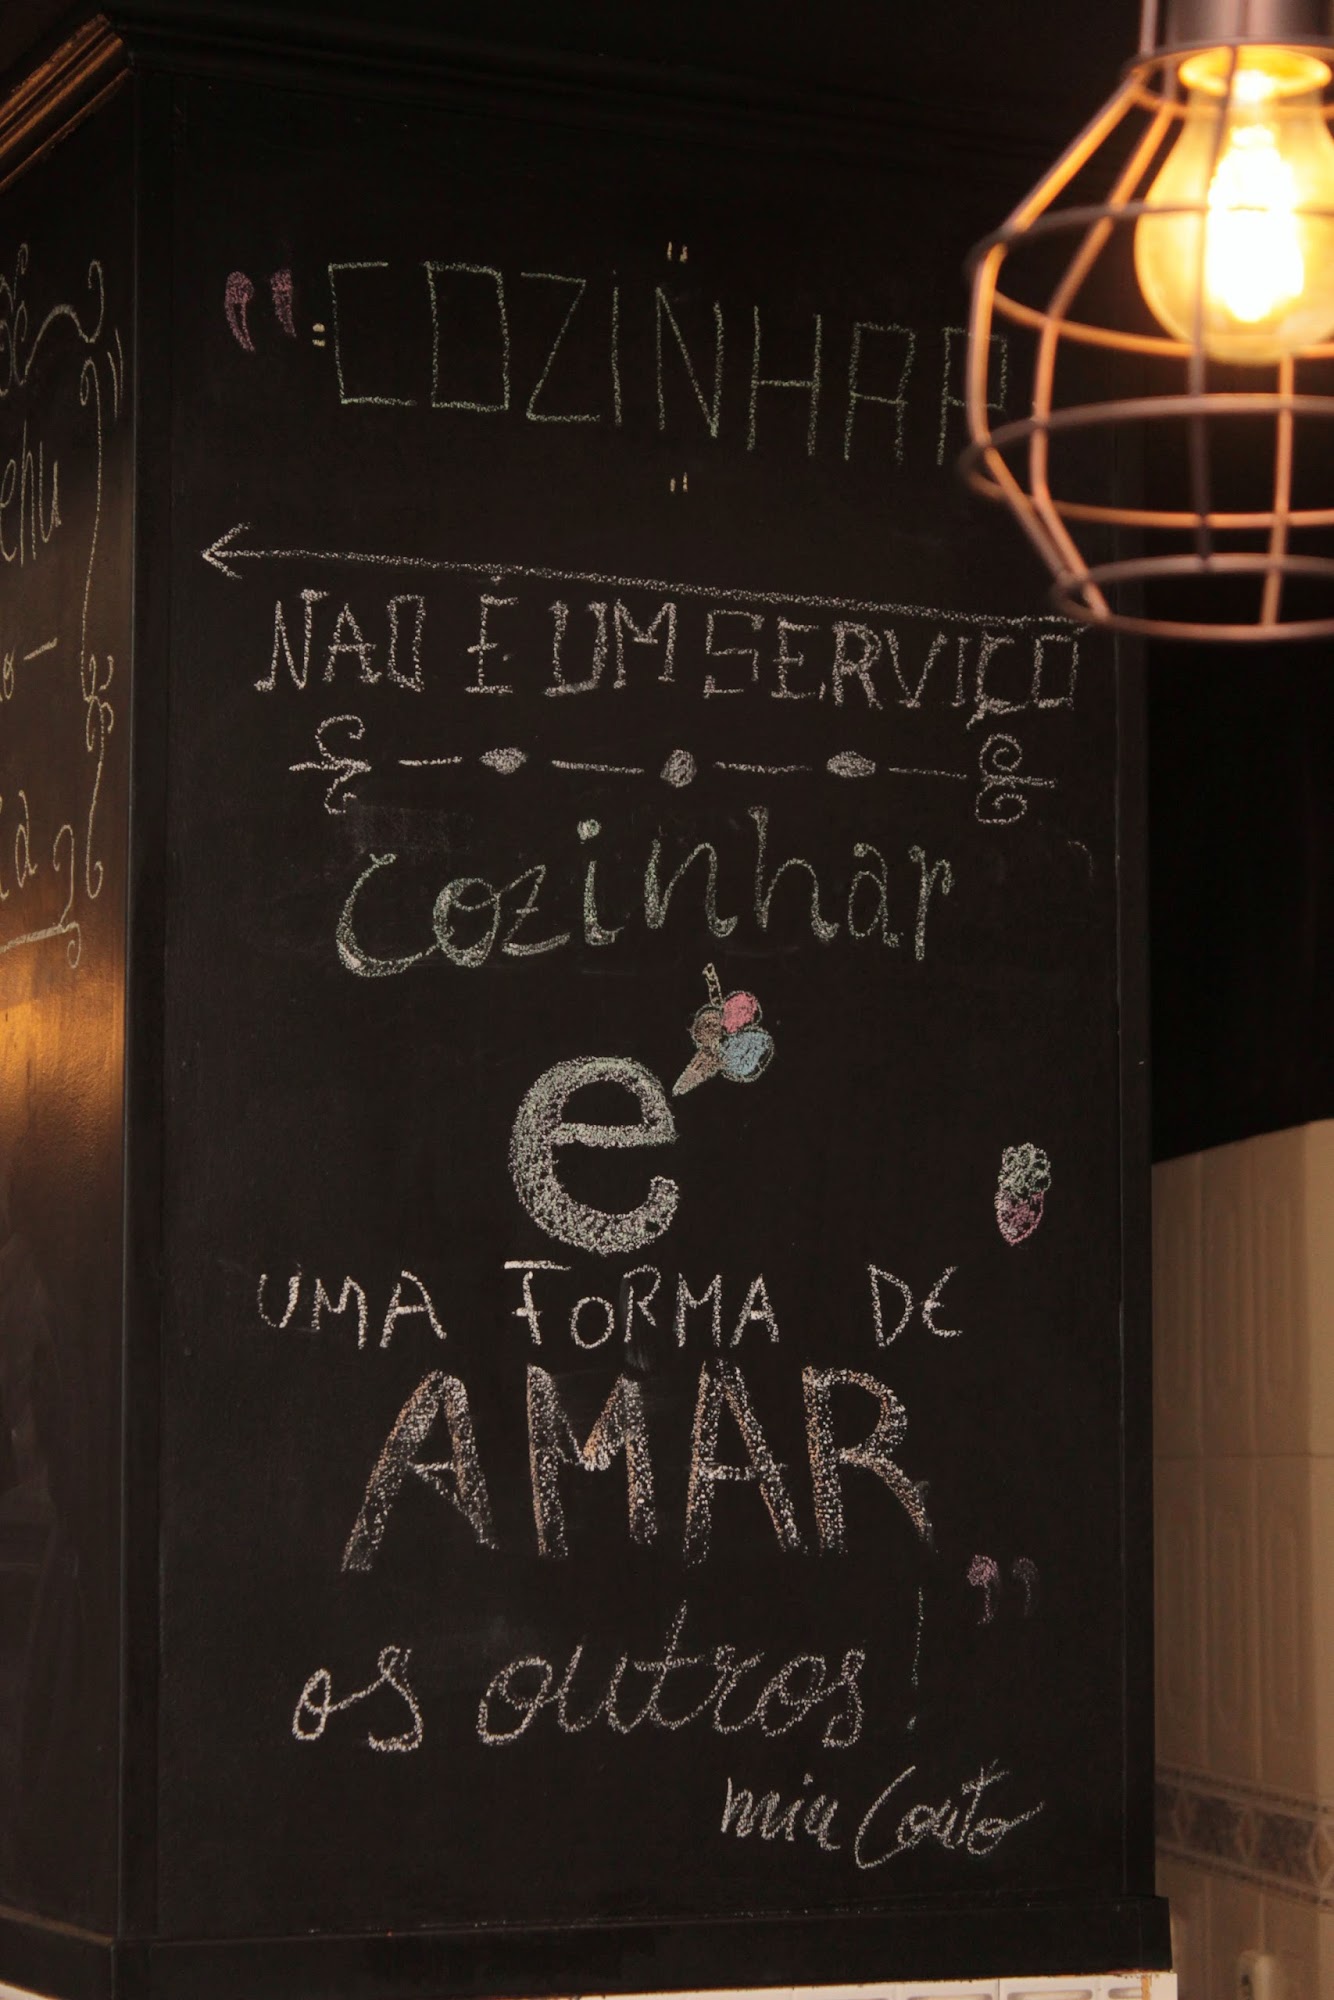 "COZINHAR
NAO É UM SERVIÇO
cozinhar
é
UMA FORMA DE
AMAR
os outros!"
mia Couto